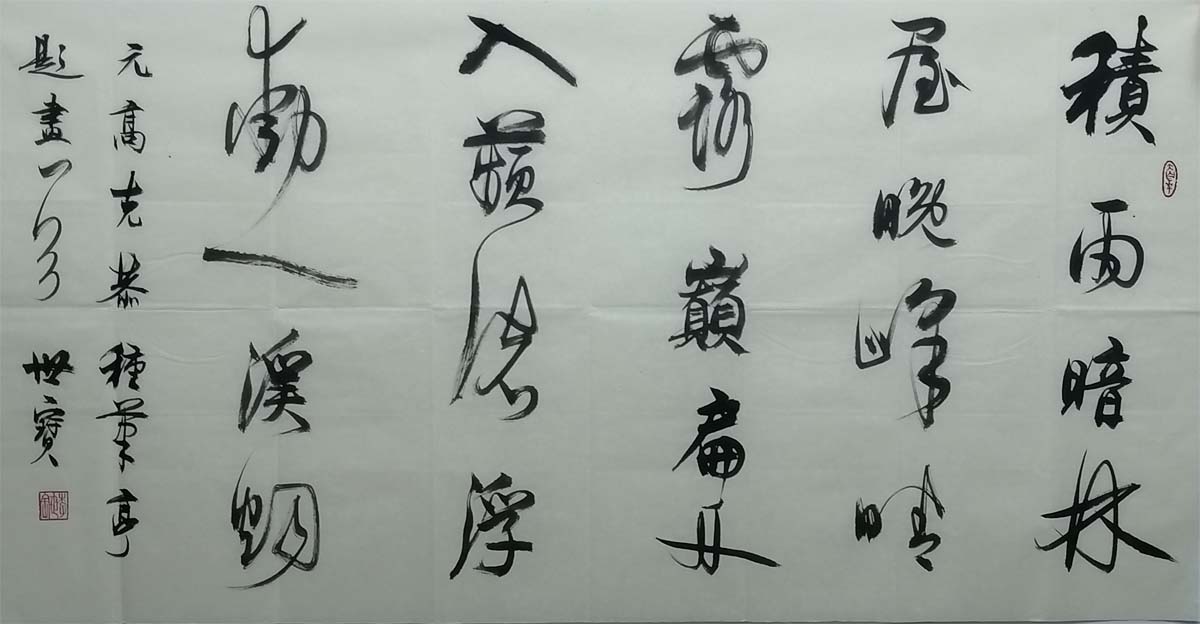 積雨暗林
屋晚峰晴
露巔扁舟
入蘋渚浮
動一溪烟
元高克恭種筆亭
題畫一首 世寶